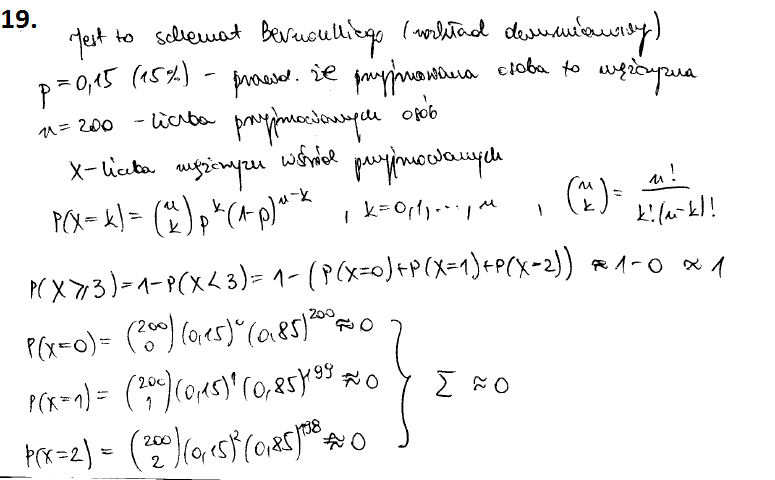 19.
Jest to schemat Bernoulliego (rozkład dwumianowy)
p = 0,15 (15%) - prawd. że przyjmowana osoba to mężczyzna
n = 200 - liczba przyjmowanych osób
X - liczba mężczyzn wśród przyjmowanych
P(X = k) = (n k) p^k (1-p)^{n-k} , k = 0,1,..., n , (n k) = n! / k!(n-k)!
P(X ⩾ 3) = 1 - P(X < 3) = 1 - (P(X=0) + P(X=1) + P(X=2)) ≈ 1 - 0 ≈ 1
P(X=0) = (200 0) (0,15)^0 (0,85)^200 ≈ 0
P(X=1) = (200 1) (0,15)^1 (0,85)^199 ≈ 0 } Σ ≈ 0
P(X=2) = (200 2) (0,15)^2 (0,85)^198 ≈ 0